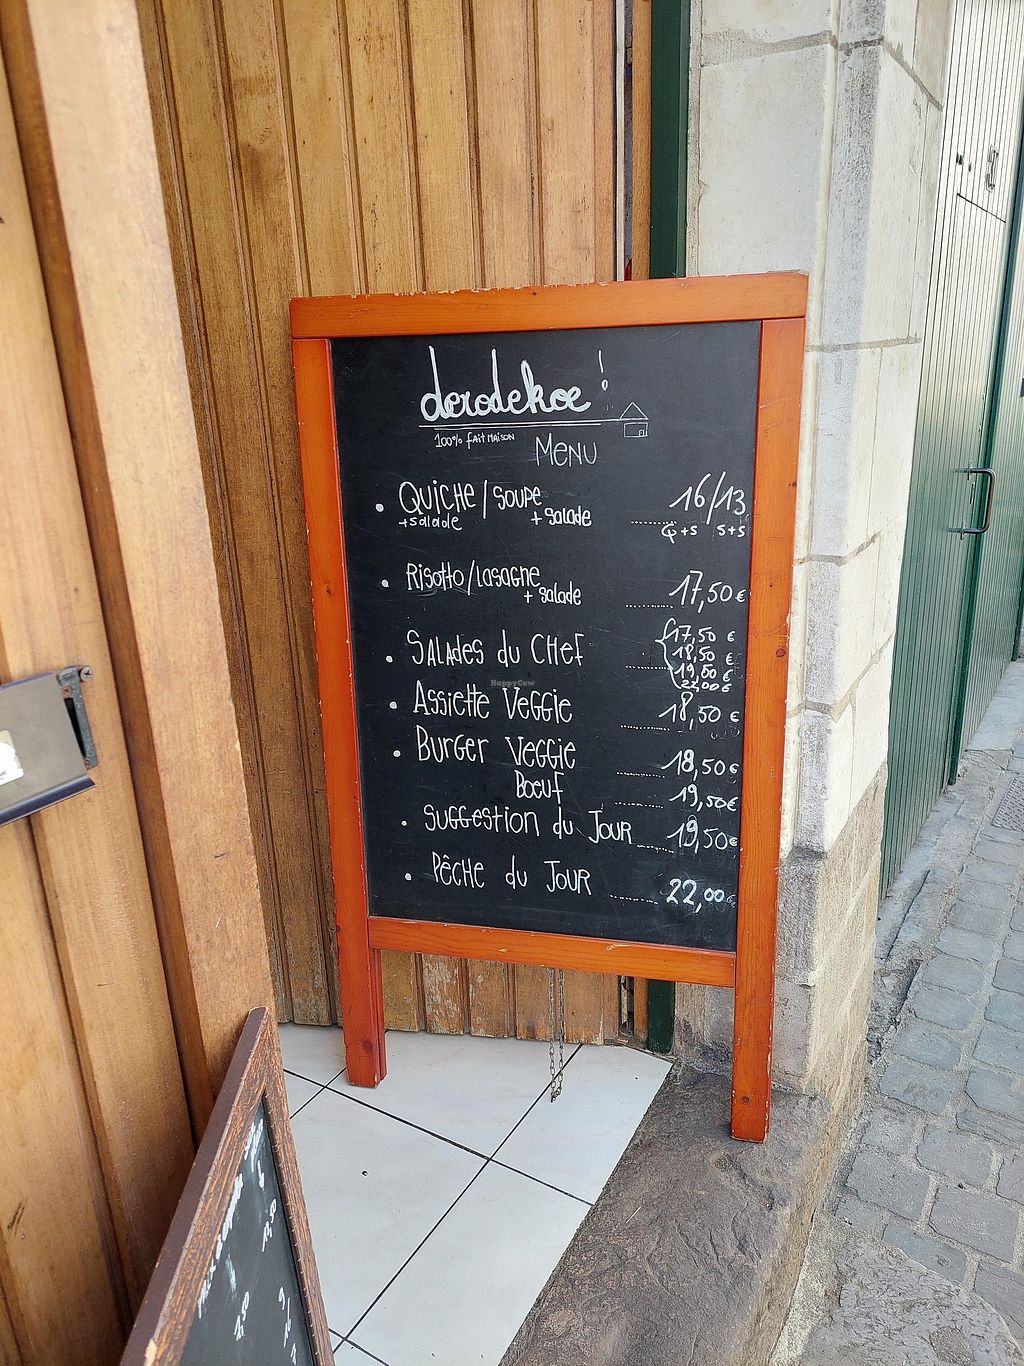 derodekoe!
100% fait maison
Menu
• Quiche/Soupe 16/13
+salade + salade ........ Q+S S+S
• Risotto/Lasagne
+ salade ........ 17,50€
• Salades du Chef ........ 17,50 €
18,50 €
19,50 €
22,00 €
HappyCow
• Assiette Veggie ........ 18,50 €
• Burger Veggie ........ 18,50€
Bœuf ........ 19,50€
• Suggestion du Jour ........ 19,50€
• Pêche du Jour ........ 22,00€